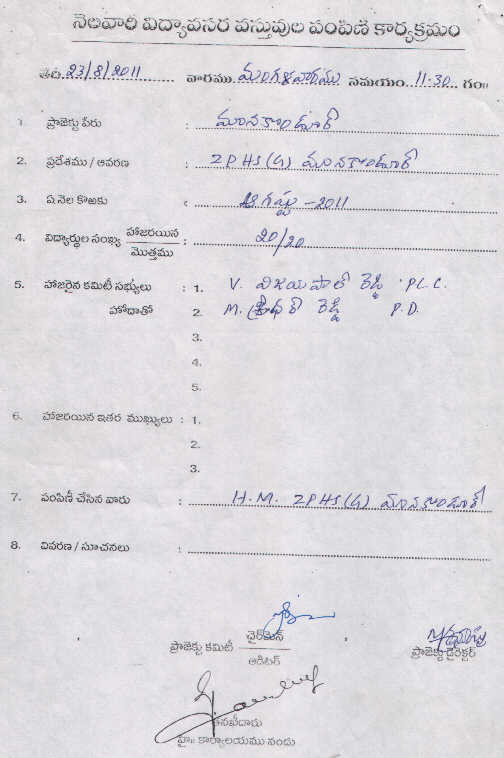 నెలవారి విద్యావసర వస్తువుల పంపిణి కార్యక్రమం
తేది. 23/8/2011 వారము. మంగళవారము సమయం. 11-30 గం॥
1. ప్రాజెక్టు పేరు : మానకొండూర్
2. ప్రదేశము / ఆవరణ : ZPHS (G) మానకొండూర్
3. ఏ నెల కొఱకు : ఆగష్టు - 2011
4. విద్యార్థుల సంఖ్య హాజరయిన / మొత్తము : 20/20
5. హాజరైన కమిటీ సభ్యులు : 1. V. విజయపాల్ రెడ్డి PL.C.
హోదాతో 2. M. శ్రీధర్ రెడ్డి P.D.
3.
4.
5.
6. హాజరయిన ఇతర ముఖ్యులు : 1.
2.
3.
7. పంపిణీ చేసిన వారు : H.M. ZPHS (G) మానకొండూర్
8. వివరణ / సూచనలు :
ప్రాజెక్టు కమిటీ చైర్మెన్ / ఆడిటర్ ప్రాజెక్టు డైరెక్టర్
తనఖీదారు
హై॥ కార్యాలయము నందు